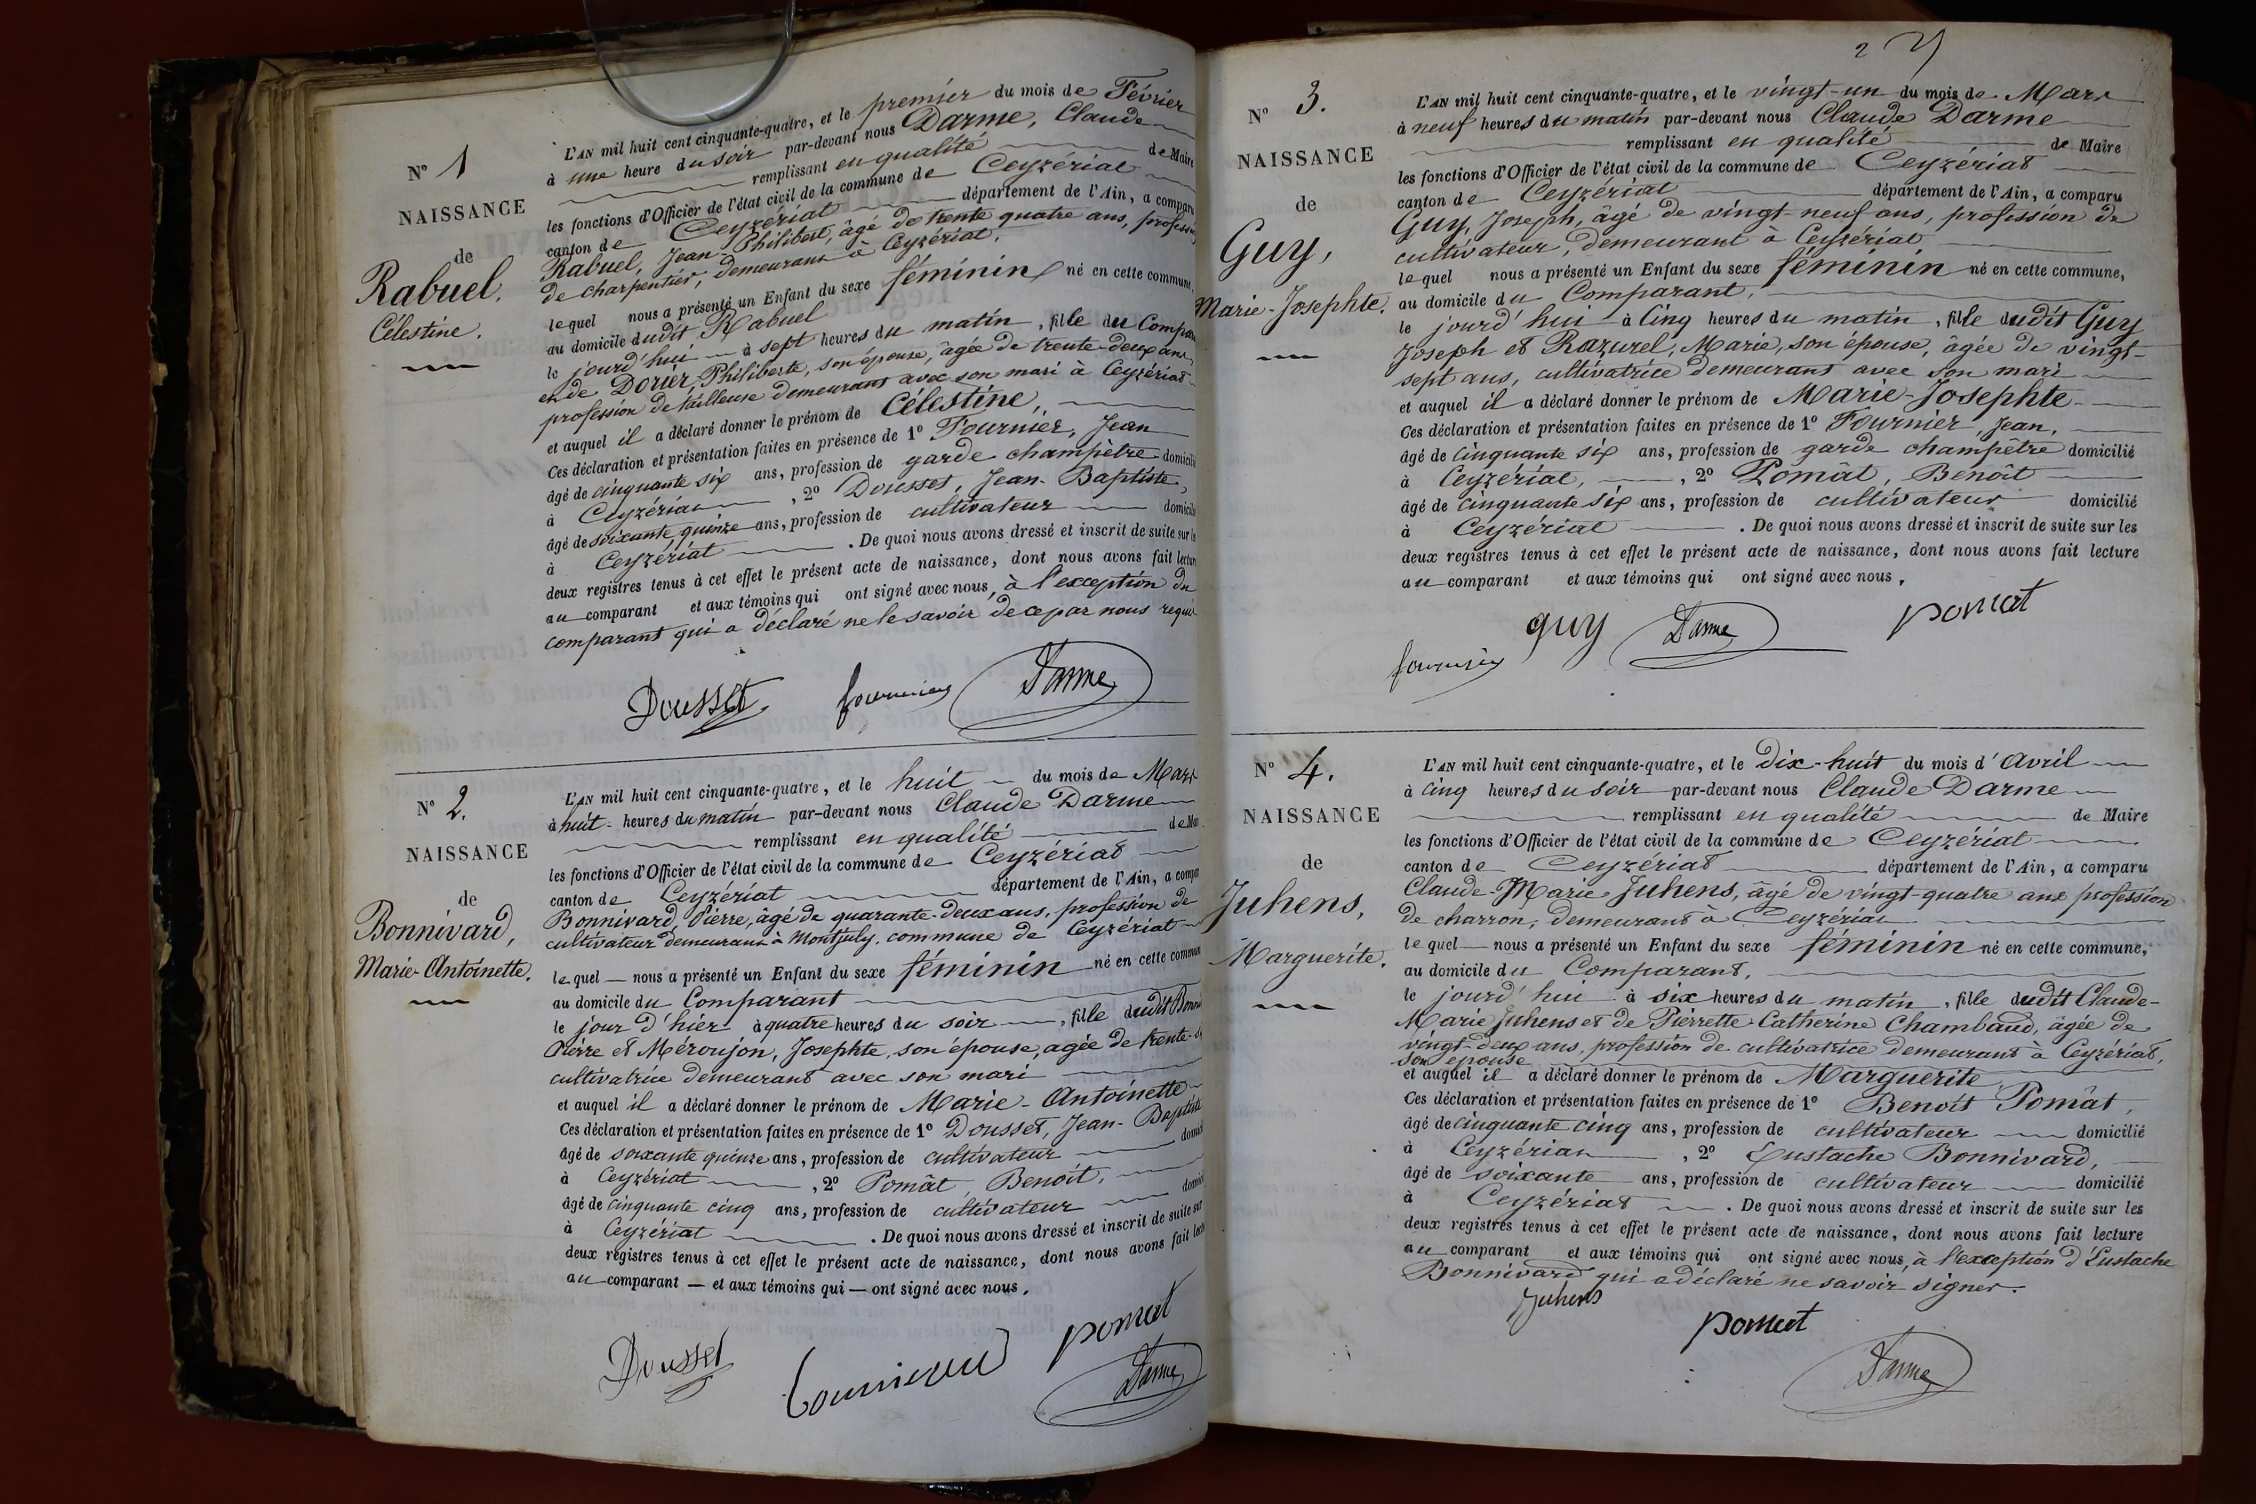 N° 1
NAISSANCE
de
Rabuel.
Célestine.
L'AN mil huit cent cinquante-quatre, et le premier du mois de Février
à une heure du soir par-devant nous Darme, Claude
remplissant en qualité de Maire
les fonctions d'Officier de l'état civil de la commune de Ceyzériat
canton de Ceyzériat département de l'Ain, a comparu
Rabuel, Jean-Philibert, âgé de trente quatre ans, profession
de charpentier, demeurant à Ceyzériat.
lequel nous a présenté un Enfant du sexe féminin né en cette commune,
au domicile dudit Rabuel
le jourd'hui à sept heures du matin, fille du Compar
et de Dorier, Philiberte, son épouse, âgée de trente-deux ans,
profession de tailleuse demeurant avec son mari à Ceyzériat
et auquel il a déclaré donner le prénom de Célestine,
Ces déclaration et présentation faites en présence de 1° Fournier, Jean
âgé de cinquante six ans, profession de garde champêtre domicilié
à Ceyzériat , 2° Dousset, Jean-Baptiste,
âgé de soixante quinze ans, profession de cultivateur domicilié
à Ceyzériat . De quoi nous avons dressé et inscrit de suite sur les
deux registres tenus à cet effet le présent acte de naissance, dont nous avons fait lecture
au comparant et aux témoins qui ont signé avec nous, à l'exception du
comparant qui a déclaré ne le savoir de ce par nous requis
Dousset fournier Darme
N° 2.
NAISSANCE
de
Bonnivard,
Marie-Antoinette.
L'AN mil huit cent cinquante-quatre, et le huit du mois de Mars
à huit heures du matin par-devant nous Claude Darme
remplissant en qualité de Mai
les fonctions d'Officier de l'état civil de la commune de Ceyzériat
canton de Ceyzériat département de l'Ain, a compar
Bonnivard, Pierre, âgé de quarante-deux ans, profession de
cultivateur demeurant à Montjuly, commune de Ceyzériat
lequel nous a présenté un Enfant du sexe féminin né en cette commun
au domicile du Comparant
le jour d'hier à quatre heures du soir , fille dudit Bonni
Pierre et Méroujon, Josephte, son épouse, agée de trente-s
cultivatrice demeurant avec son mari
et auquel il a déclaré donner le prénom de Marie-Antoinette
Ces déclaration et présentation faites en présence de 1° Dousset, Jean-Baptiste
âgé de soixante quinze ans, profession de cultivateur domici
à Ceyzériat , 2° Pomât, Benoit,
âgé de cinquante cinq ans, profession de cultivateur domici
à Ceyzériat . De quoi nous avons dressé et inscrit de suite sur
deux registres tenus à cet effet le présent acte de naissance, dont nous avons fait lect
au comparant et aux témoins qui ont signé avec nous.
Dousset pomat
Darme
2
N° 3.
NAISSANCE
de
Guy,
Marie-Josephte.
L'AN mil huit cent cinquante-quatre, et le vingt-un du mois de Mars
à neuf heures du matin par-devant nous Claude Darme
remplissant en qualité de Maire
les fonctions d'Officier de l'état civil de la commune de Ceyzériat
canton de Ceyzériat département de l'Ain, a comparu
Guy, Joseph, âgé de vingt-neuf ans, profession de
cultivateur, demeurant à Ceyzériat
lequel nous a présenté un Enfant du sexe féminin né en cette commune,
au domicile du Comparant,
le jourd'hui à Cinq heures du matin, fille dudit Guy
Joseph et Razurel, Marie, son épouse, âgée de vingt-
sept ans, cultivatrice demeurant avec son mari
et auquel il a déclaré donner le prénom de Marie-Josephte
Ces déclaration et présentation faites en présence de 1° Fournier, Jean,
âgé de cinquante six ans, profession de garde champêtre domicilié
à Ceyzériat, , 2° Pomât, Benoît
âgé de cinquante six ans, profession de cultivateur domicilié
à Ceyzériat . De quoi nous avons dressé et inscrit de suite sur les
deux registres tenus à cet effet le présent acte de naissance, dont nous avons fait lecture
au comparant et aux témoins qui ont signé avec nous.
guy Darme pomat
fournier
N° 4.
NAISSANCE
de
Juhens,
Marguerite.
L'AN mil huit cent cinquante-quatre, et le dix-huit du mois d'avril
à cinq heures du soir par-devant nous Claude Darme
remplissant en qualité de Maire
les fonctions d'Officier de l'état civil de la commune de Ceyzériat
canton de Ceyzériat département de l'Ain, a comparu
Claude-Marie Juhens, âgé de vingt-quatre ans profession
de charron, demeurant à Ceyzériat
lequel nous a présenté un Enfant du sexe féminin né en cette commune,
au domicile du Comparant,
le jourd'hui à six heures du matin, fille dudit Claude-
Marie Juhens et de Pierrette Catherine Chambaud, âgée de
vingt-deux ans, profession de cultivatrice demeurant à Ceyzériat,
son épouse
et auquel il a déclaré donner le prénom de Marguerite
Ces déclaration et présentation faites en présence de 1° Benoit Pomât,
âgé de cinquante cinq ans, profession de cultivateur domicilié
à Ceyzériat , 2° Eustache Bonnivard,
âgé de soixante ans, profession de cultivateur domicilié
à Ceyzériat . De quoi nous avons dressé et inscrit de suite sur les
deux registres tenus à cet effet le présent acte de naissance, dont nous avons fait lecture
au comparant et aux témoins qui ont signé avec nous, à l'exception d'Eustache
Bonnivard qui a déclaré ne savoir signer.
Juhens
pomat
Darme